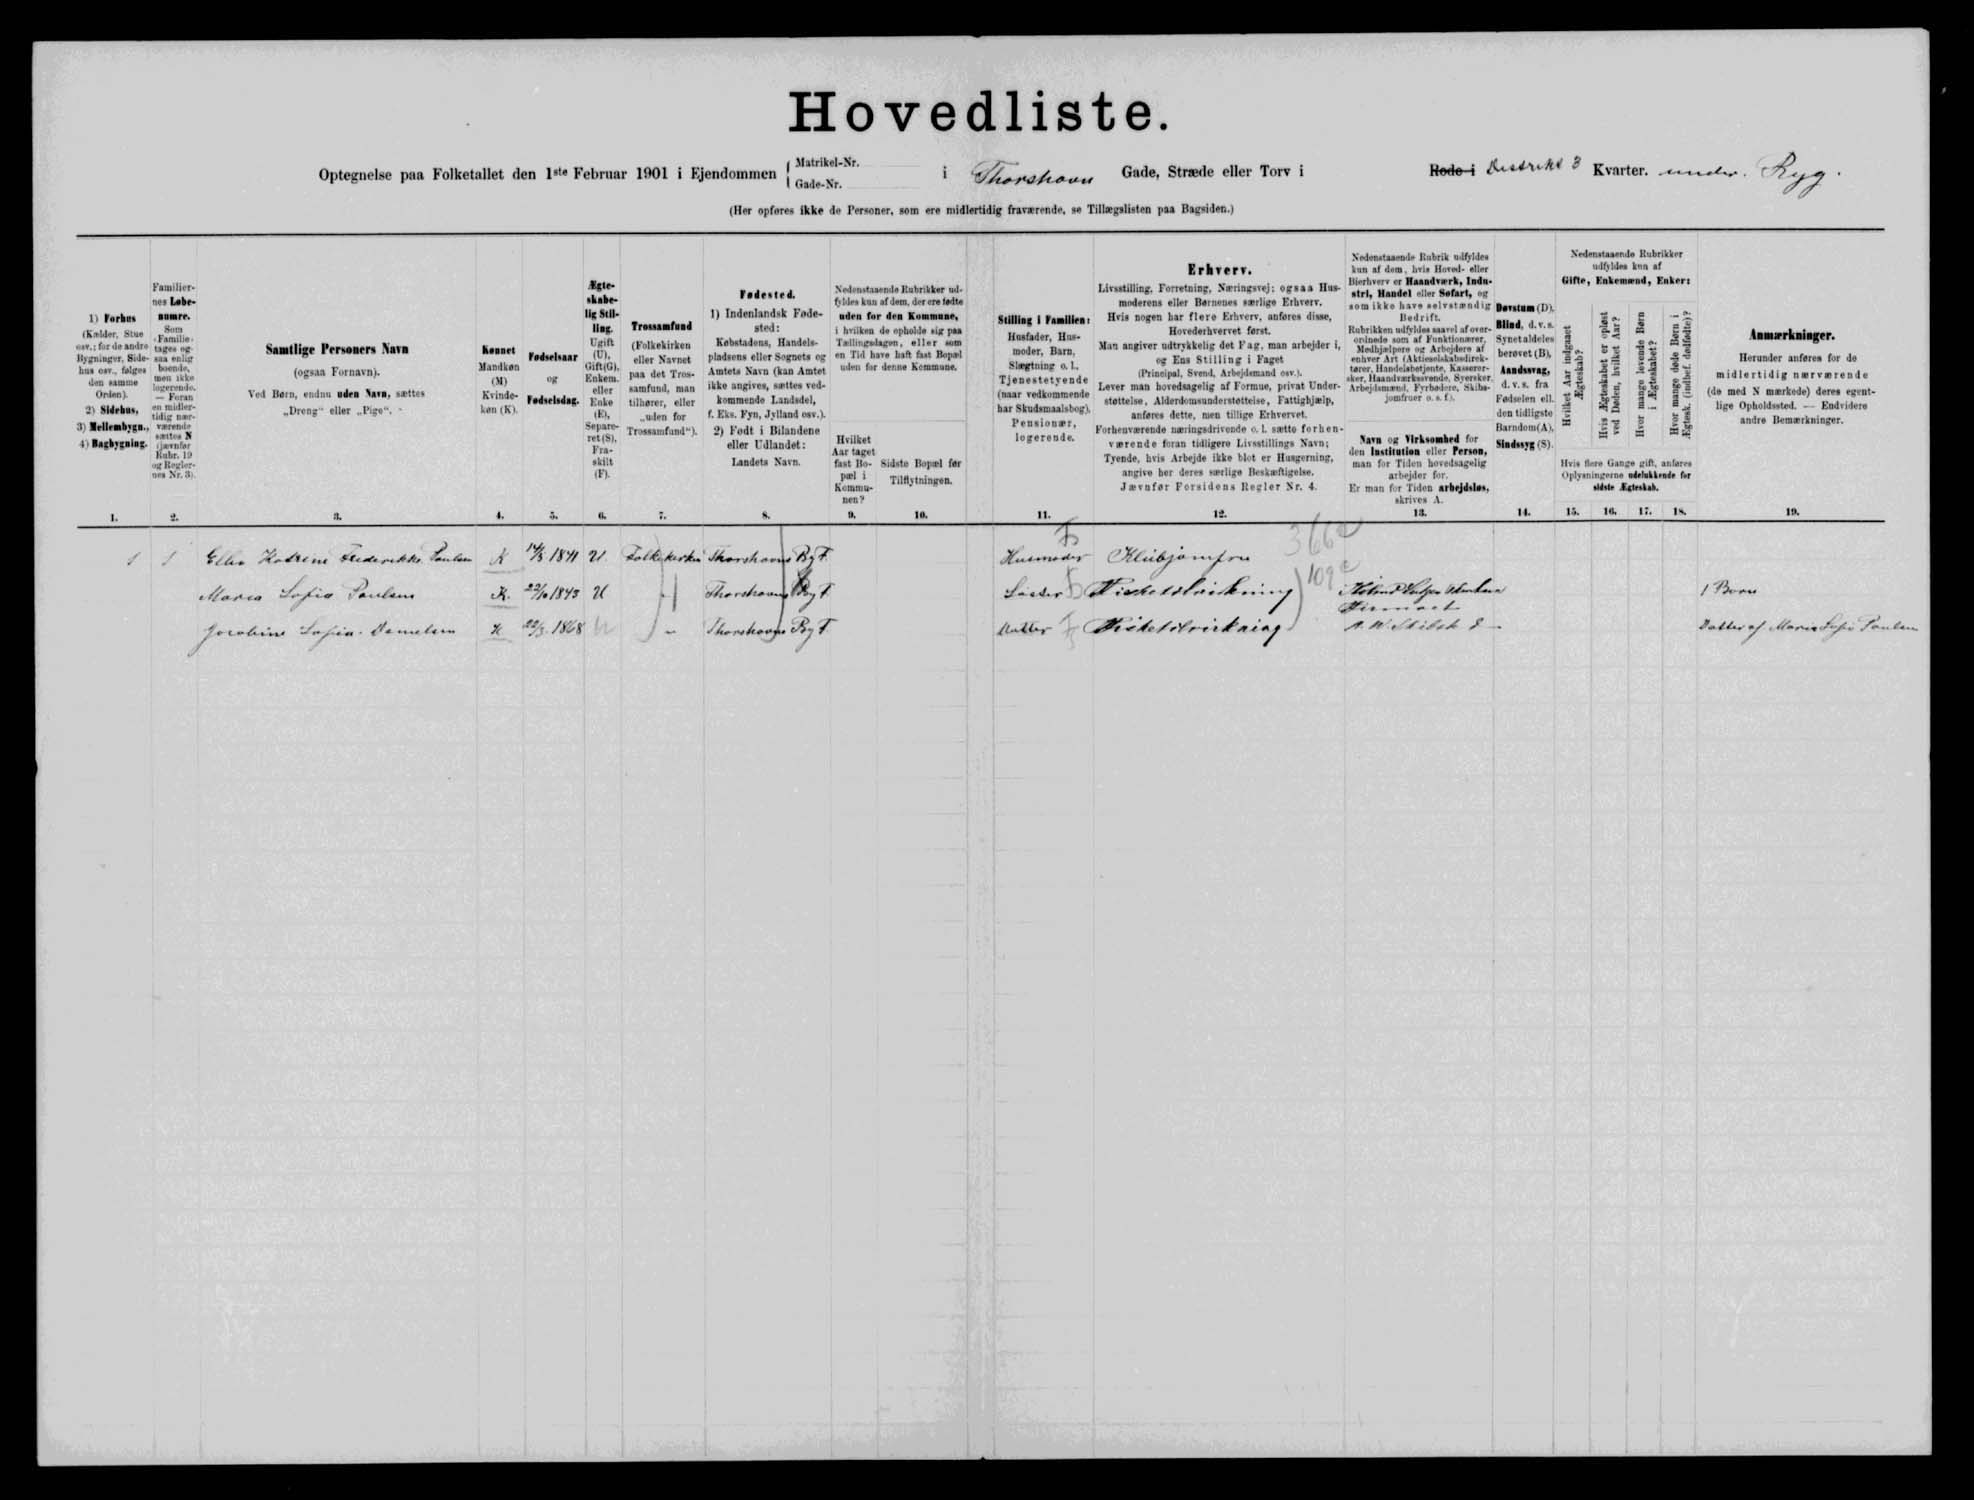 Hovedliste.
Optegnelse paa Folketallet den 1ste Februar 1901 i Ejendommen { Matrikel-Nr. Gade-Nr. i Thorshavn Gade, Stræde eller Torv i Rode i Distrikt 3 Kvarter. under. Ryg.
(Her opføres ikke de Personer, som ere midlertidig fraværende, se Tillægslisten paa Bagsiden.)
1) Forhus
(Kælder, Stue
osv.; for de andre
Bygninger, Side-
hus osv., følges
den samme
Orden).
2) Sidehus,
3) Mellembygn.,
4) Bagbygning.
1.
Familier-
nes Løbe-
numre.
Som
„Familie“
tages og-
saa enlig
boende,
men ikke
logerende.
— Foran
en midler-
tidig nær-
værende
sættes N
(jævnfør
Rubr. 19
og Regler-
nes Nr. 3).
2.
Samtlige Personers Navn
(ogsaa Fornavn).
Ved Børn, endnu uden Navn, sættes
„Dreng“ eller „Pige“.
3.
Kønnet
Mandkøn
(M)
Kvinde-
køn (K).
4.
Fødselsaar
og
Fødselsdag.
5.
Ægte-
skabe-
lig Stil-
ling.
Ugift
(U),
Gift(G),
Enkem.
eller
Enke
(E),
Separe-
ret (S),
Fra-
skilt
(F).
6.
Trossamfund
(Folkekirken
eller Navnet
paa det Tros-
samfund, man
tilhører, eller
„uden for
Trossamfund“).
7.
Fødested.
1) Indenlandsk Føde-
sted:
Købstadens, Handels-
pladsens eller Sognets og
Amtets Navn (kan Amtet
ikke angives, sættes ved-
kommende Landsdel,
f. Eks. Fyn, Jylland osv.).
2) Født i Bilandene
eller Udlandet:
Landets Navn.
8.
Nedenstaaende Rubrikker ud-
fyldes kun af dem, der ere fødte
uden for den Kommune,
i hvilken de opholde sig paa
Tællingsdagen, eller som
en Tid have haft fast Bopæl
uden for denne Kommune.
Hvilket
Aar taget
fast Bo-
pæl i
Kommu-
nen?
9.
Sidste Bopæl før
Tilflytningen.
10.
Stilling i Familien:
Husfader, Hus-
moder, Barn,
Slægtning o. l.,
Tjenestetyende
(naar vedkommende
har Skudsmaalsbog),
Pensionær,
logerende.
11.
Erhverv.
Livsstilling, Forretning, Næringsvej; ogsaa Hus-
moderens eller Børnenes særlige Erhverv.
Hvis nogen har flere Erhverv, anføres disse,
Hovederhvervet først.
Man angiver udtrykkelig det Fag, man arbejder i,
og Ens Stilling i Faget
(Principal, Svend, Arbejdsmand osv.).
Lever man hovedsagelig af Formue, privat Under-
støttelse, Alderdomsunderstøttelse, Fattighjælp,
anføres dette, men tillige Erhvervet.
Forhenværende næringsdrivende o. l. sætte forhen-
værende foran tidligere Livsstillings Navn;
Tyende, hvis Arbejde ikke blot er Husgerning,
angive her deres særlige Beskæftigelse.
Jævnfør Forsidens Regler Nr. 4.
12.
Nedenstaaende Rubrik udfyldes
kun af dem, hvis Hoved- eller
Bierhverv er Haandværk, Indu-
stri, Handel eller Søfart, og
som ikke have selvstændig
Bedrift.
Rubrikken udfyldes saavel af over-
ordnede som af Funktionærer,
Medhjælpere og Arbejdere af
enhver Art (Aktieselskabsdirek-
tører, Handelsbetjente, Kasserer-
sker, Haandværkssvende, Syersker,
Arbejdsmænd, Fyrbødere, Skibs-
jomfruer o. s. f.).
Navn og Virksomhed for
den Institution eller Person,
man for Tiden hovedsagelig
arbejder for.
Er man for Tiden arbejdsløs,
skrives A.
13.
Døvstum (D),
Blind, d. v. s.
Synet aldeles
berøvet (B),
Aandssvag,
d. v. s. fra
Fødselen ell.
den tidligste
Barndom (A),
Sindssyg (S).
14.
Nedenstaaende Rubrikker
udfyldes kun af
Gifte, Enkemænd, Enker:
Hvilket Aar indgaaet
Ægteskab?
Hvis Ægteskabet er opløst
ved Døden, hvilket Aar?
Hvor mange levende Børn
i Ægteskabet?
Hvor mange døde Børn i
Ægtesk. (indbef. dødfødte)?
Hvis flere Gange gift, anføres
Oplysningerne udelukkende for
sidste Ægteskab.
15. 16. 17. 18.
Anmærkninger.
Herunder anføres for de
midlertidig nærværende
(de med N mærkede) deres egent-
lige Opholdssted. — Endvidere
andre Bemærkninger.
19.
1 1 Elba Katrine Frederikke Paulsen K 14/3 1841 U. Folkekirken Thorshavns By F. Husmoder Klubjomfru 366
Maria Sofia Paulsen K. 22/10 1843 U " Thorshavns By F. Søster Fisketilvirkning 109 1 Barn
Jacobine Sofia Danielsen K 22/3 1868 U " Thorshavns By F. Datter Fisketilvirkning Datter af Maria Sofie Paulsen